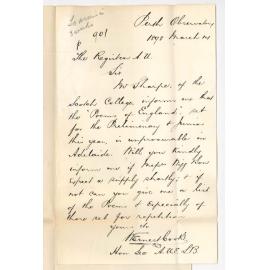 901
Perth Observatory
1898 March 14
The Registrar A.U.
Sir
Mr Sharpe, of the
Scotch College informs me that
the "Poems of England", set
for the Preliminary & Junior
this year, is unprocurable in
Adelaide. Will you kindly
inform me if Messrs Rigby &
expect a supply shortly; & if
not can you give me a list
of the Poems & especially of
those set for repetition
Yours &c
W Ernest Cooke
Hon Sec A.U.E.